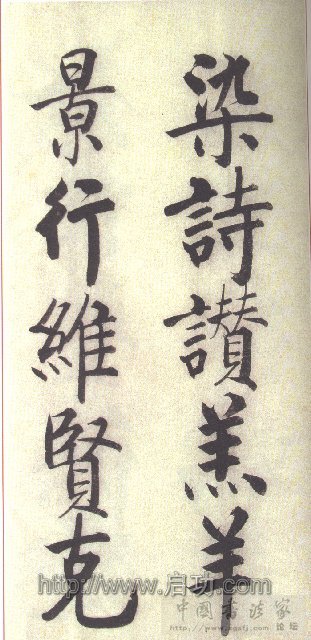 染詩讃羔羊
景行維賢克
http://www.启功.com
中国书法家
论坛